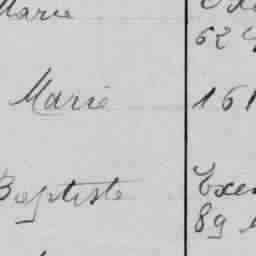 Marie
62
Marie 161
Baptiste Exem
89